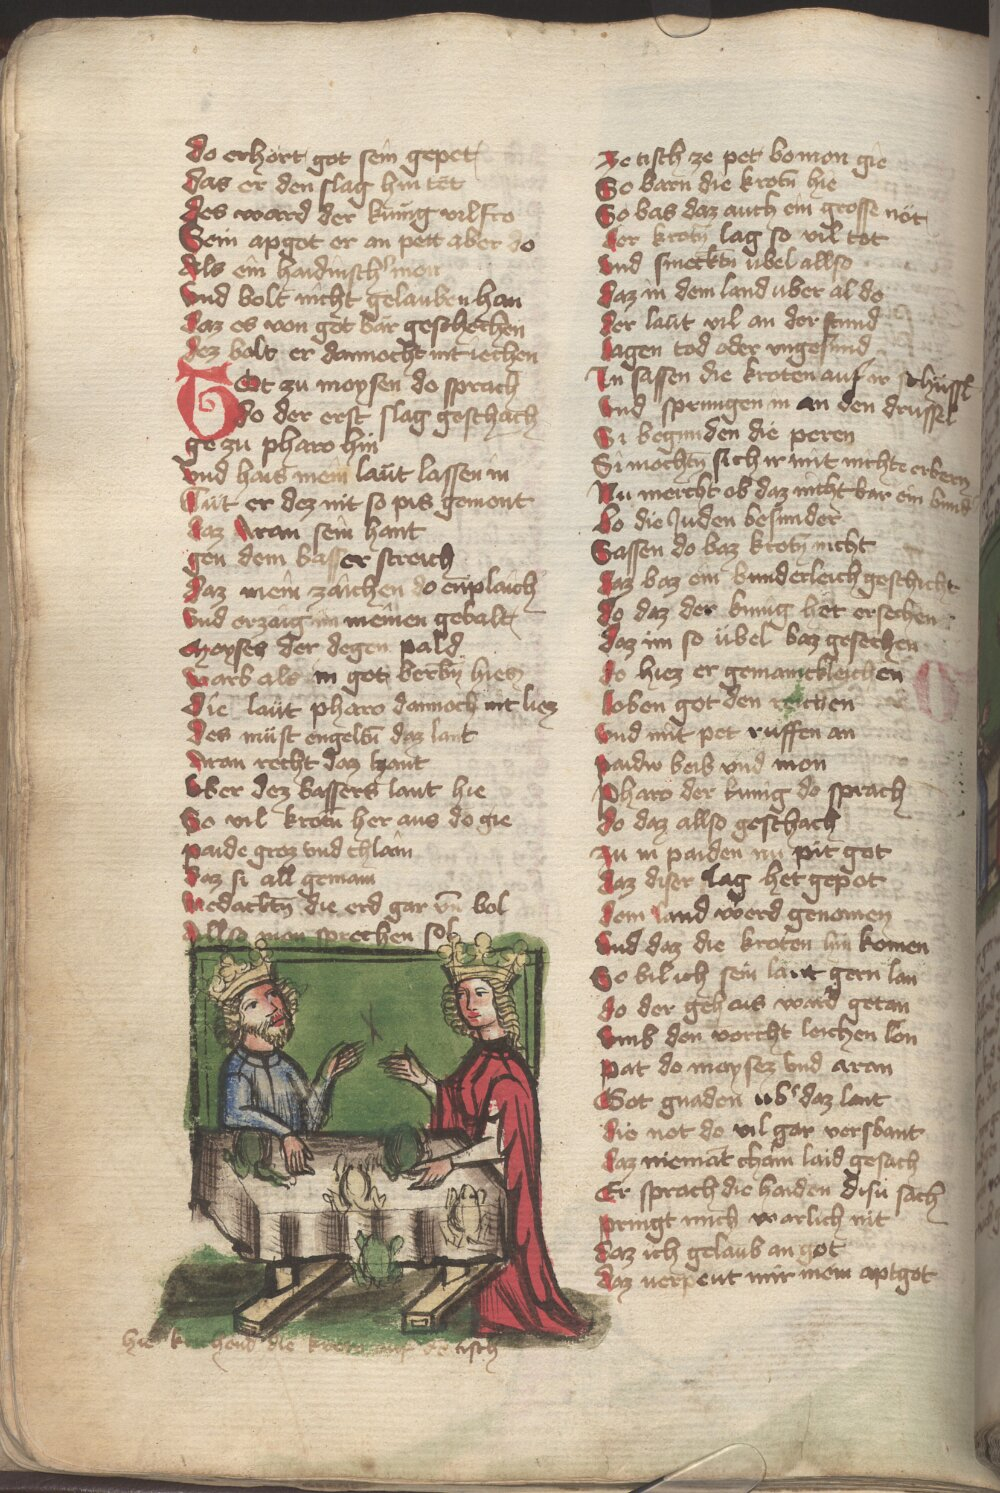 do erhort got sein gepet
das er den slag hin tet
des ward der kunig vil fro
Sein apgot er an pett aber do
Als ein haidinsch' man
vnd bolt nicht gelauben han
daz es von got bar geschechen
dez bolt er dannocht nit iechen
Gott zu moysen do sprach
do der erst slag geschach
ge zu pharo hin
vnd hais mein laut lassen in
Tut er dez nit so pis gemont
daz Aran sein hant
gen dem basser streich
daz mein zaichen do
vnd erzaig im meinen gebalt
Moyses der degen pald
warb als in got hies
die laut pharo dannoch nit liez
des must engelten daz lant
Aran recht daz hant
vber dez bassers laut hie
So vil kroten her aus do gie
paide groz vnd chlain
daz si all gemain
die erd gar vn bol
Allso man sprechen sol
Ze tisch ze pet bo mon gie
So barn die krotn hie
So bas daz auch ein grosse not
der krotn lag so vil tot
vnd smecktn vbel allso
daz in dem land vber al do
der laut vil an der stund
lagen tod oder vngesund
In sassen die kroten auf ir schussl
vnd sprungen in an den drussel
Si begunden die peren
Si mochtn sich ir mit nichte erbern
Nu mercht ob daz nicht bar ein bund
bo die Juden besunder
Sassen do baz krotn nicht
daz baz ein bunderleich geschicht
do daz der kunig het ersechen
daz im so ubel baz geschen
do hiez er gemainckleichen
loben got den reichen
vnd mit pet ruffen an
paidw beib vnd mon
Pharo der kunig do sprach
do daz allso geschach
Zu in paiden nu pit got
daz diser slag het gepot
dem land werd genomen
vnd daz die kroten hin komen
So bil ich sein laut gern lan
do der gehais ward getan
vmb den vorcht leichen lon
pat do moysez vnd aran
Got gnaden vb' daz lant
die not do vil gar versbant
daz niemat chain laid gesach
Er sprach die haiden disu sach
pringt mich warlich nit
daz ich gelaub an got
daz verpeut mir mein aptgot
hie die tisch